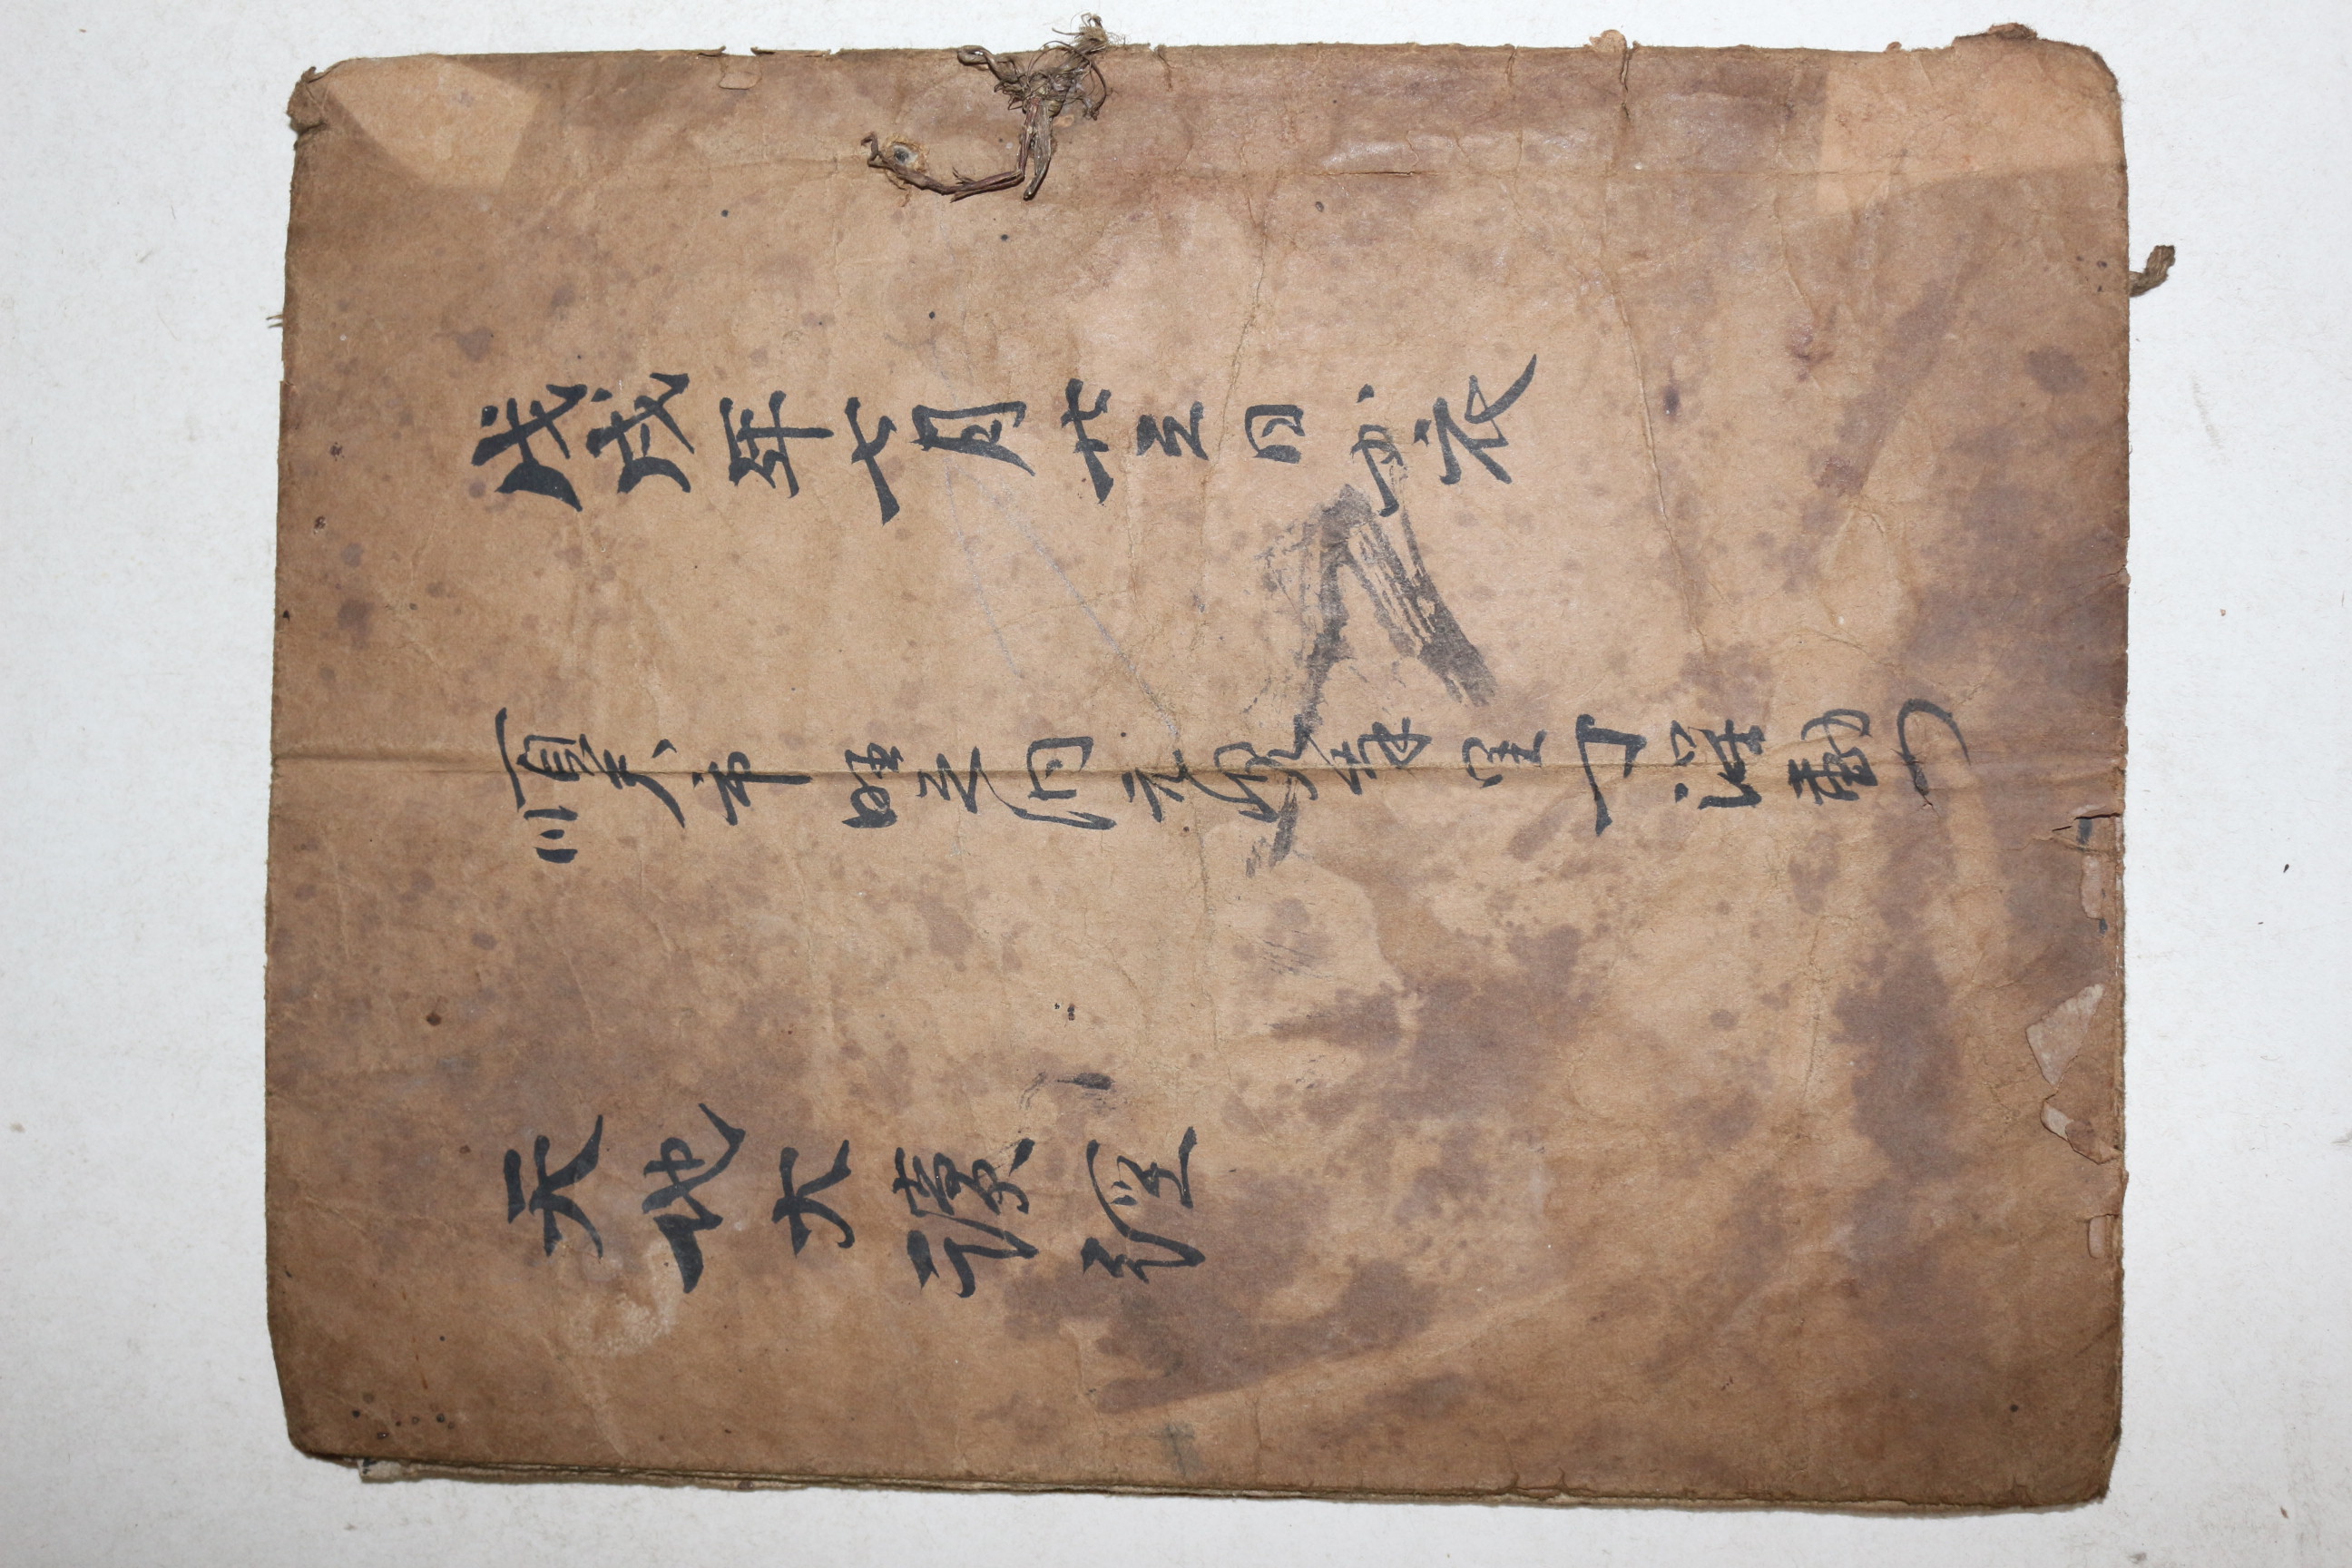 戊戌年七月廿三日加衣
順天市旺之洞元峴孝里丁渥動
天地大讀經